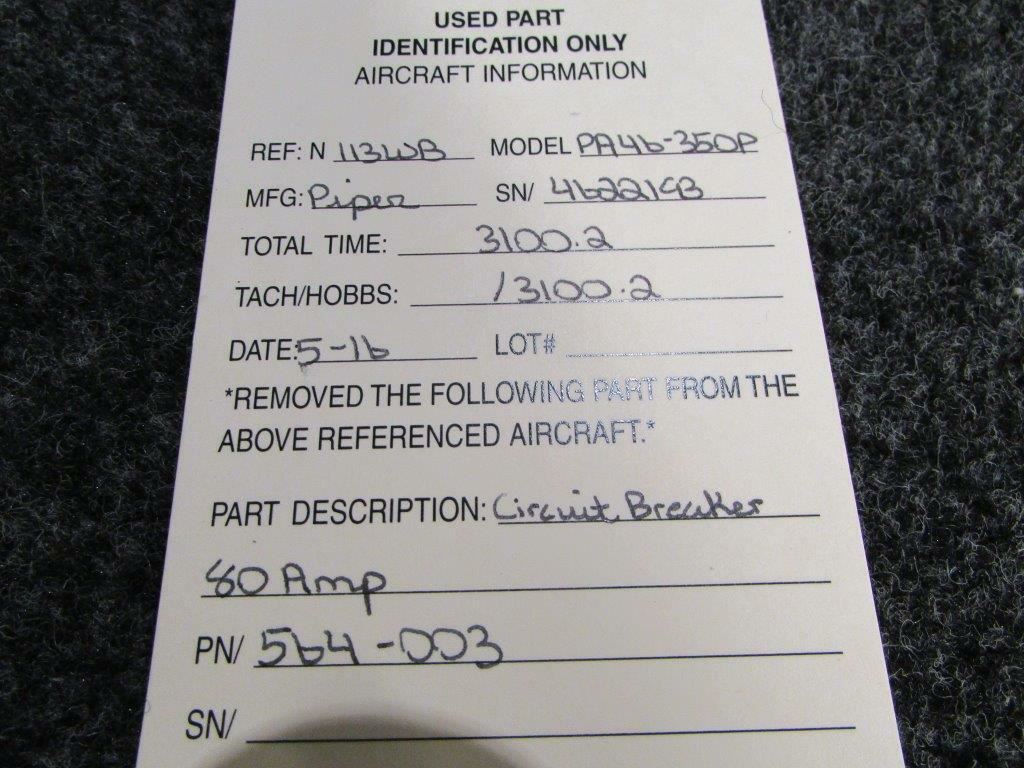 USED PART
IDENTIFICATION ONLY
AIRCRAFT INFORMATION
REF: N 113WB MODEL PA46-350P
MFG: Piper SN/ 4622193
TOTAL TIME: 3100.2
TACH/HOBBS: /3100.2
DATE: 5-16 LOT#
*REMOVED THE FOLLOWING PART FROM THE
ABOVE REFERENCED AIRCRAFT.*
PART DESCRIPTION: Circuit Breaker
80 Amp
PN/ 564-003
SN/